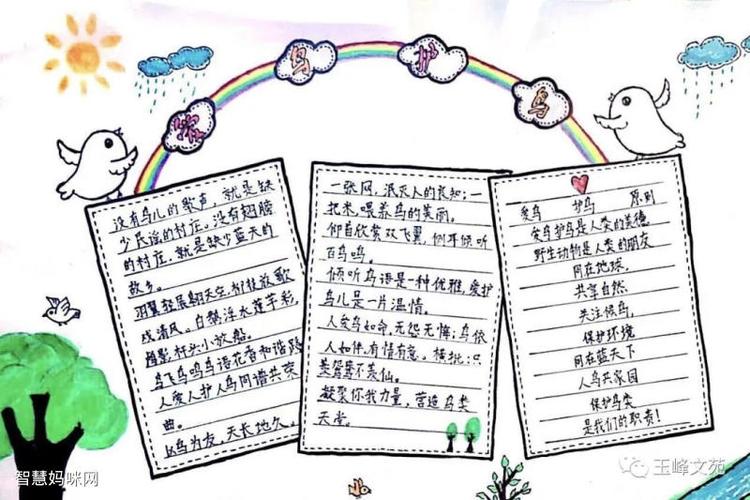 爱鸟护鸟
没有鸟儿的歌声，就是缺
少民谣的村庄。没有翅膀
的村庄，就是缺少蓝天的
故乡。
羽翼轻展翱天空，
成清风。白鹅浮水莲芊彩，
林头小放船。
鸟飞鸟鸣鸟语花香和谐
人爱人护人鸟同谱共荣
曲。
以鸟为友，天长地久。
一张网，泯灭人的良知；一
把米，喂养鸟的美丽。
仰首欣赏双飞翼，侧耳倾听
百鸟鸣。
倾听鸟语是一种优雅，爱护
鸟儿是一片温情。
人爱鸟如命，无怨无悔；鸟依
人如伴，有情有意。横批：只
羡鸳鸯不羡仙。
凝聚你我力量，营造鸟类
天堂。
爱鸟 护鸟 原则
爱鸟护鸟是人类的美德
野生动物是人类的朋友
同在地球，
共享自然
关注候鸟，
保护环境
同在蓝天下
人鸟共家园
保护鸟类
是我们的职责！
智慧妈咪网
玉峰文苑